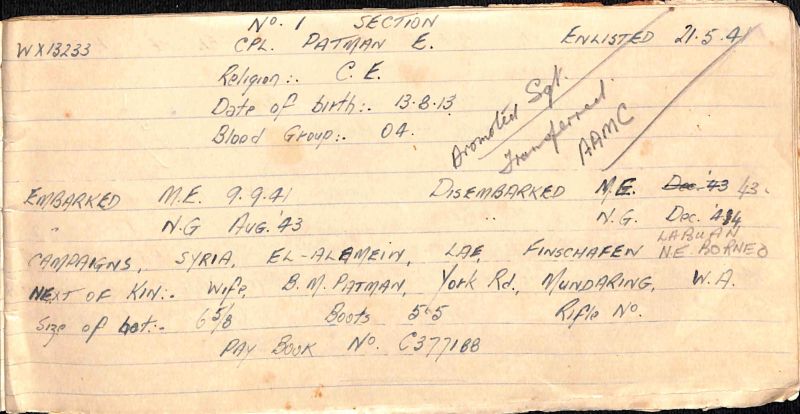 No. 1 SECTION
WX13233 CPL. PATMAN E. ENLISTED 21.5.41
Religion:. C.E.
Date of birth:. 13.8.13
Blood Group:. O4.
Promoted Sgt.
Transferred
AAMC
EMBARKED M.E. 9.9.41 DISEMBARKED M.E. Dec. '43 43.
" N.G AUG. '43 " N.G. Dec. '44
CAMPAIGNS, SYRIA, EL-ALAMEIN, LAE, FINSCHAFEN LABUAN
N.E. BORNEO
NEXT OF KIN:. Wife, B.M. PATMAN, York Rd., MUNDARING, W.A.
Size of hat:. 6 5/8 Boots 5-5 Rifle No.
PAY BOOK No. C377188